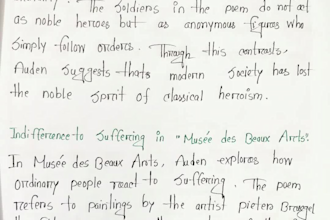 The soldiers in the poem do not act
as noble heroes but as anonymous figures who
simply follow orders. Through this contrasts,
Auden suggests thats modern society has lost
the noble spirit of classical herroism.
Indifference to Suffering in "Musée des Beaux Arts".
In Musée des Beaux Arts, Auden explores how
ordinary people react to suffering. The poem
refers to paintings by the artist pieter Bruegel